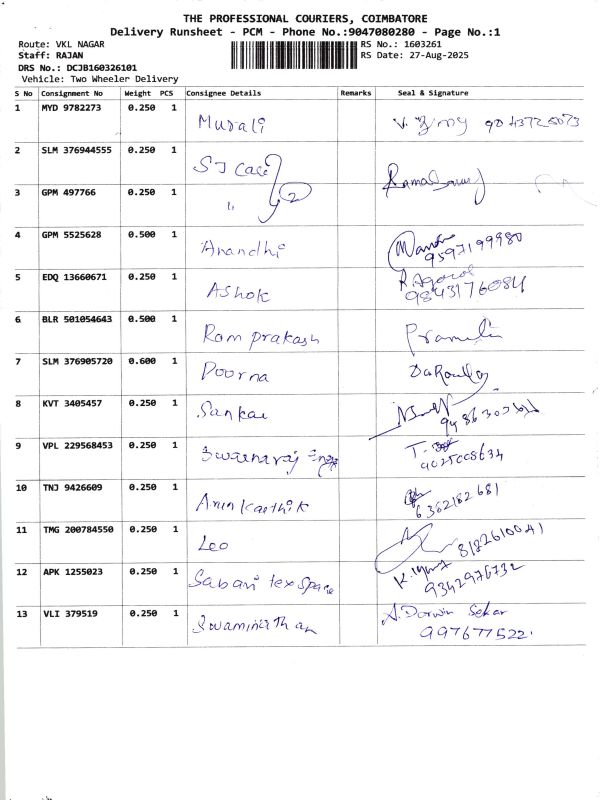 THE PROFESSIONAL COURIERS, COIMBATORE
Delivery Runsheet - PCM - Phone No.:9047080280 - Page No.:1
Route: VKL NAGAR RS No.: 1603261
Staff: RAJAN RS Date: 27-Aug-2025
DRS No.: DCJB160326101
Vehicle: Two Wheeler Delivery
S No Consignment No Weight PCS Consignee Details Remarks Seal & Signature
1 MYD 9782273 0.250 1 Murali
2 SLM 376944555 0.250 1 SJ
3 GPM 497766 0.250 1 " 2
4 GPM 5525628 0.500 1 Anandhi 9597199980
5 EDQ 13660671 0.250 1 Ashok 9843176084
6 BLR 501054643 0.500 1 Ram prakash Pramila
7 SLM 376905720 0.600 1 Poorna
8 KVT 3405457 0.250 1 Sankar
9 VPL 229568453 0.250 1 Swarnaraj 9025008634
10 TNJ 9426609 0.250 1 Arun Karthik 6362182681
11 TMG 200784550 0.250 1 Leo 8122610041
12 APK 1255023 0.250 1 Sabari tex space 9342976732
13 VLI 379519 0.250 1 Swaminathan A. Darwin Sekar
997677522